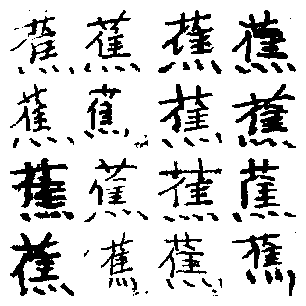 蕉蕉蕉蕉
蕉蕉蕉蕉
蕉蕉蕉蕉
蕉蕉蕉蕉